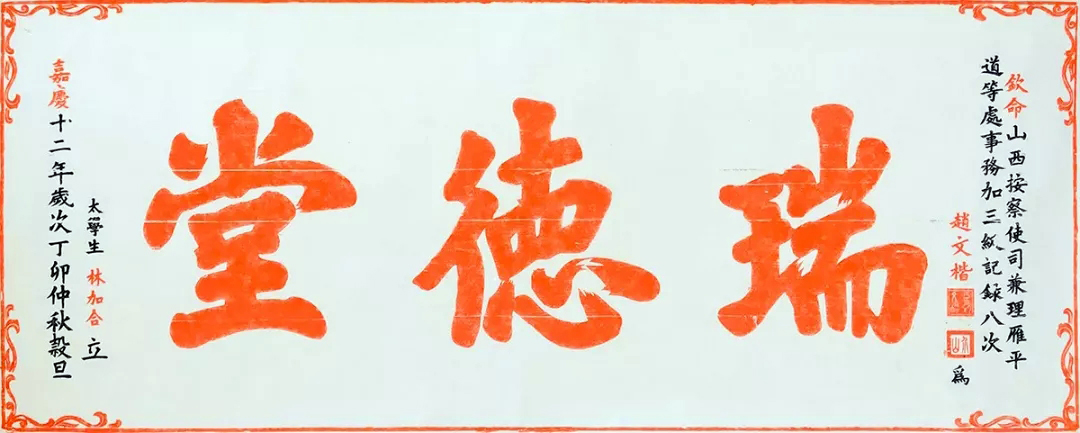 欽命山西按察使司兼理雁平
道等處事務加三級記錄八次
趙文楷
為
瑞德堂
太學生 林加合 立
嘉慶十二年歲次丁卯仲秋穀旦